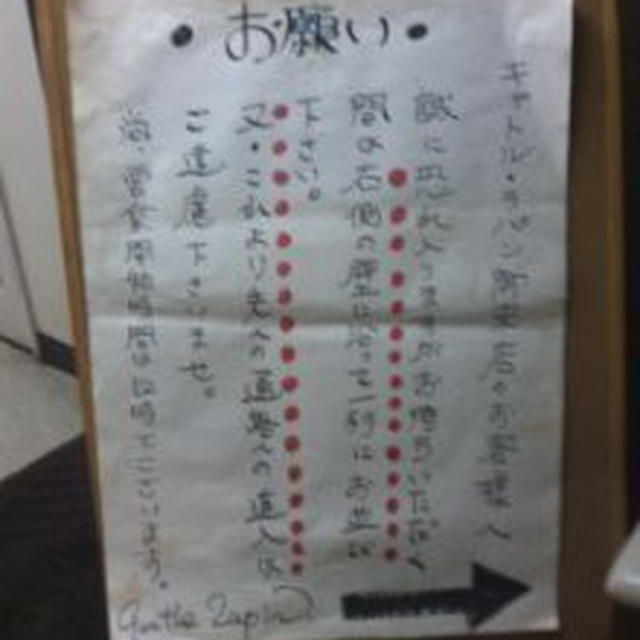 ・お願い・
キャトル・ラパン御来店のお客様へ
誠に恐れ入りますがお待ちいただく
間は右側の壁に沿って一列にお並び
下さい。
又・これより先への通路への進入は
ご遠慮下さいませ。
尚、営業開始時間は 時でございます。